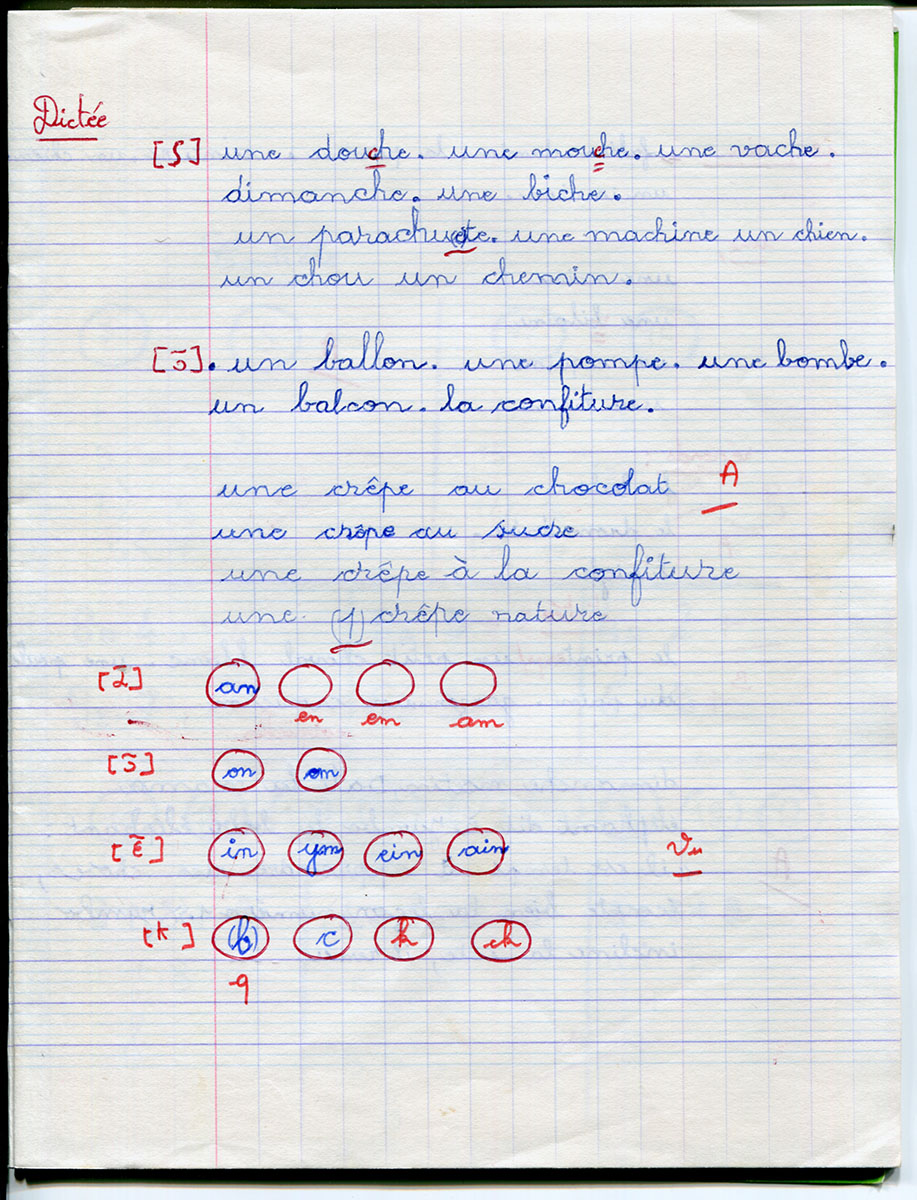 Dictée
[ʃ] une douche. une mouche. une vache.
dimanche. une biche.
un parachu(e)te. une machine un chien.
un chou un chemin.
[ɔ̃]. un ballon. une pompe. une bombe.
un balcon. la confiture.
une crêpe au chocolat A
une crêpe au sucre
une crêpe à la confiture
une (1) crêpe nature
[ɑ̃] an
en em am
[ɔ̃] on om
[ɛ̃] in ym ein ain Vu
[k] c k ck
q